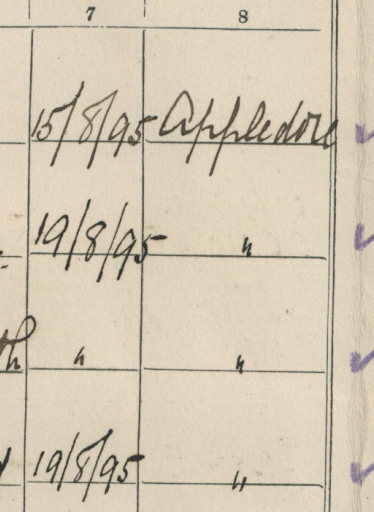 7 8
15/8/95 Appledore
19/8/95 "
th " "
19/8/95 "